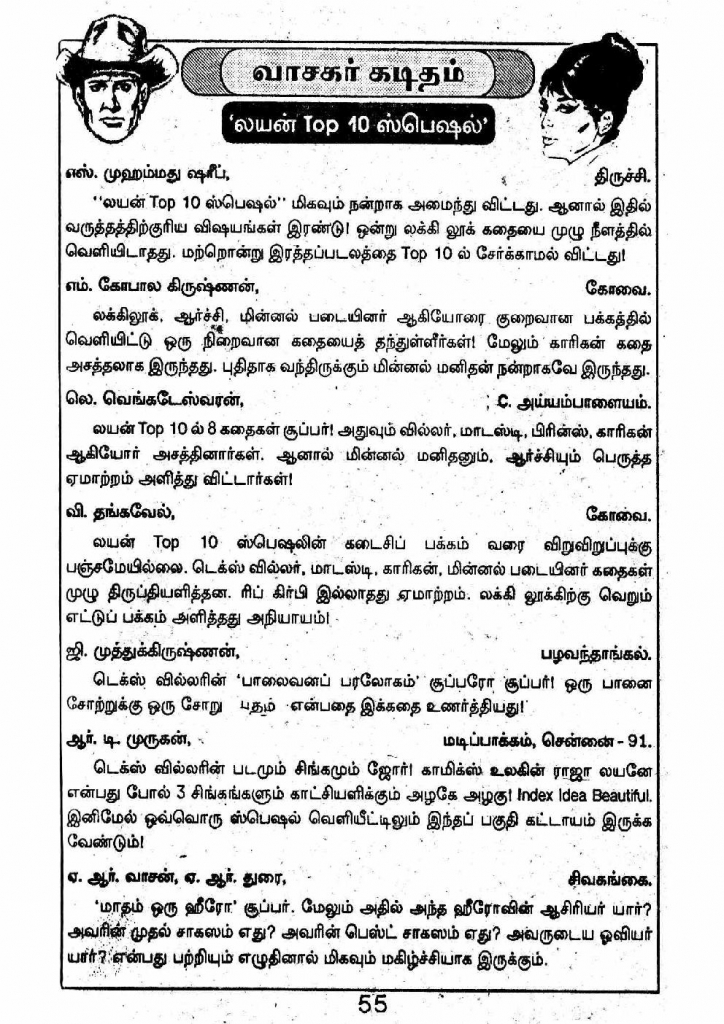 வாசகர் கடிதம்
'லயன் Top 10 ஸ்பெஷல்'
எஸ். முஹம்மது ஷரீப், திருச்சி.
"லயன் Top 10 ஸ்பெஷல்" மிகவும் நன்றாக அமைந்து விட்டது. ஆனால் இதில்
வருத்தத்திற்குரிய விஷயங்கள் இரண்டு! ஒன்று லக்கி லூக் கதையை முழு நீளத்தில்
வெளியிடாதது. மற்றொன்று இரத்தப்படலத்தை Top 10 ல் சேர்க்காமல் விட்டது!
எம். கோபால கிருஷ்ணன், கோவை.
லக்கிலூக், ஆர்ச்சி, மின்னல் படையினர் ஆகியோரை குறைவான பக்கத்தில்
வெளியிட்டு ஒரு நிறைவான கதையைத் தந்துள்ளீர்கள்! மேலும் காரிகன் கதை
அசத்தலாக இருந்தது. புதிதாக வந்திருக்கும் மின்னல் மனிதன் நன்றாகவே இருந்தது.
லெ. வெங்கடேஸ்வரன், C. அய்யம்பாளையம்.
லயன் Top 10 ல் 8 கதைகள் சூப்பர்! அதுவும் வில்லர், மாடஸ்டி, பிரின்ஸ், காரிகன்
ஆகியோர் அசத்தினார்கள். ஆனால் மின்னல் மனிதனும், ஆர்ச்சியும் பெருத்த
ஏமாற்றம் அளித்து விட்டார்கள்!
வி. தங்கவேல், கோவை.
லயன் Top 10 ஸ்பெஷலின் கடைசிப் பக்கம் வரை விறுவிறுப்புக்கு
பஞ்சமேயில்லை. டெக்ஸ் வில்லர், மாடஸ்டி, காரிகன், மின்னல் படையினர் கதைகள்
முழு திருப்தியளித்தன. ரிப் கிர்பி இல்லாதது ஏமாற்றம். லக்கி லூக்கிற்கு வெறும்
எட்டுப் பக்கம் அளித்தது அநியாயம்!
ஜி. முத்துக்கிருஷ்ணன், பழவந்தாங்கல்.
டெக்ஸ் வில்லரின் 'பாலைவனப் பரலோகம்' சூப்பரோ சூப்பர்! ஒரு பானை
சோற்றுக்கு ஒரு சோறு பதம் என்பதை இக்கதை உணர்த்தியது!
ஆர். டி. முருகன், மடிப்பாக்கம், சென்னை - 91.
டெக்ஸ் வில்லரின் படமும் சிங்கமும் ஜோர்! காமிக்ஸ் உலகின் ராஜா லயனே
என்பது போல் 3 சிங்கங்களும் காட்சியளிக்கும் அழகே அழகு! Index Idea Beautiful.
இனிமேல் ஒவ்வொரு ஸ்பெஷல் வெளியீட்டிலும் இந்தப் பகுதி கட்டாயம் இருக்க
வேண்டும்!
ஏ. ஆர். வாசன், ஏ. ஆர். துரை, சிவகங்கை.
'மாதம் ஒரு ஹீரோ' சூப்பர். மேலும் அதில் அந்த ஹீரோவின் ஆசிரியர் யார்?
அவரின் முதல் சாகஸம் எது? அவரின் பெஸ்ட் சாகஸம் எது? அவருடைய ஓவியர்
யார்? என்பது பற்றியும் எழுதினால் மிகவும் மகிழ்ச்சியாக இருக்கும்.
55